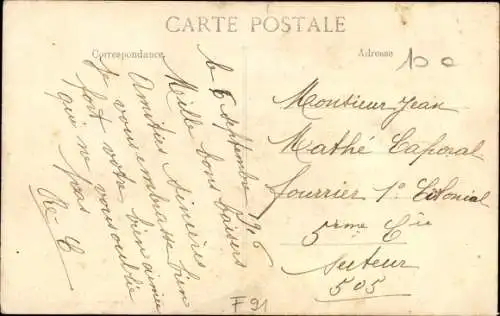 CARTE POSTALE
Correspondance
Adresse
le 6 septembre 1916
Mille bons baisers
Amitiés sincères
je vous embrasse bien
fort votre bien aimée
qui ne vous oublie
pas
R-C
Monsieur Jean
Mathé Caporal
fourrier 1º Colonial
5ème Cie
Secteur
505
F91
100